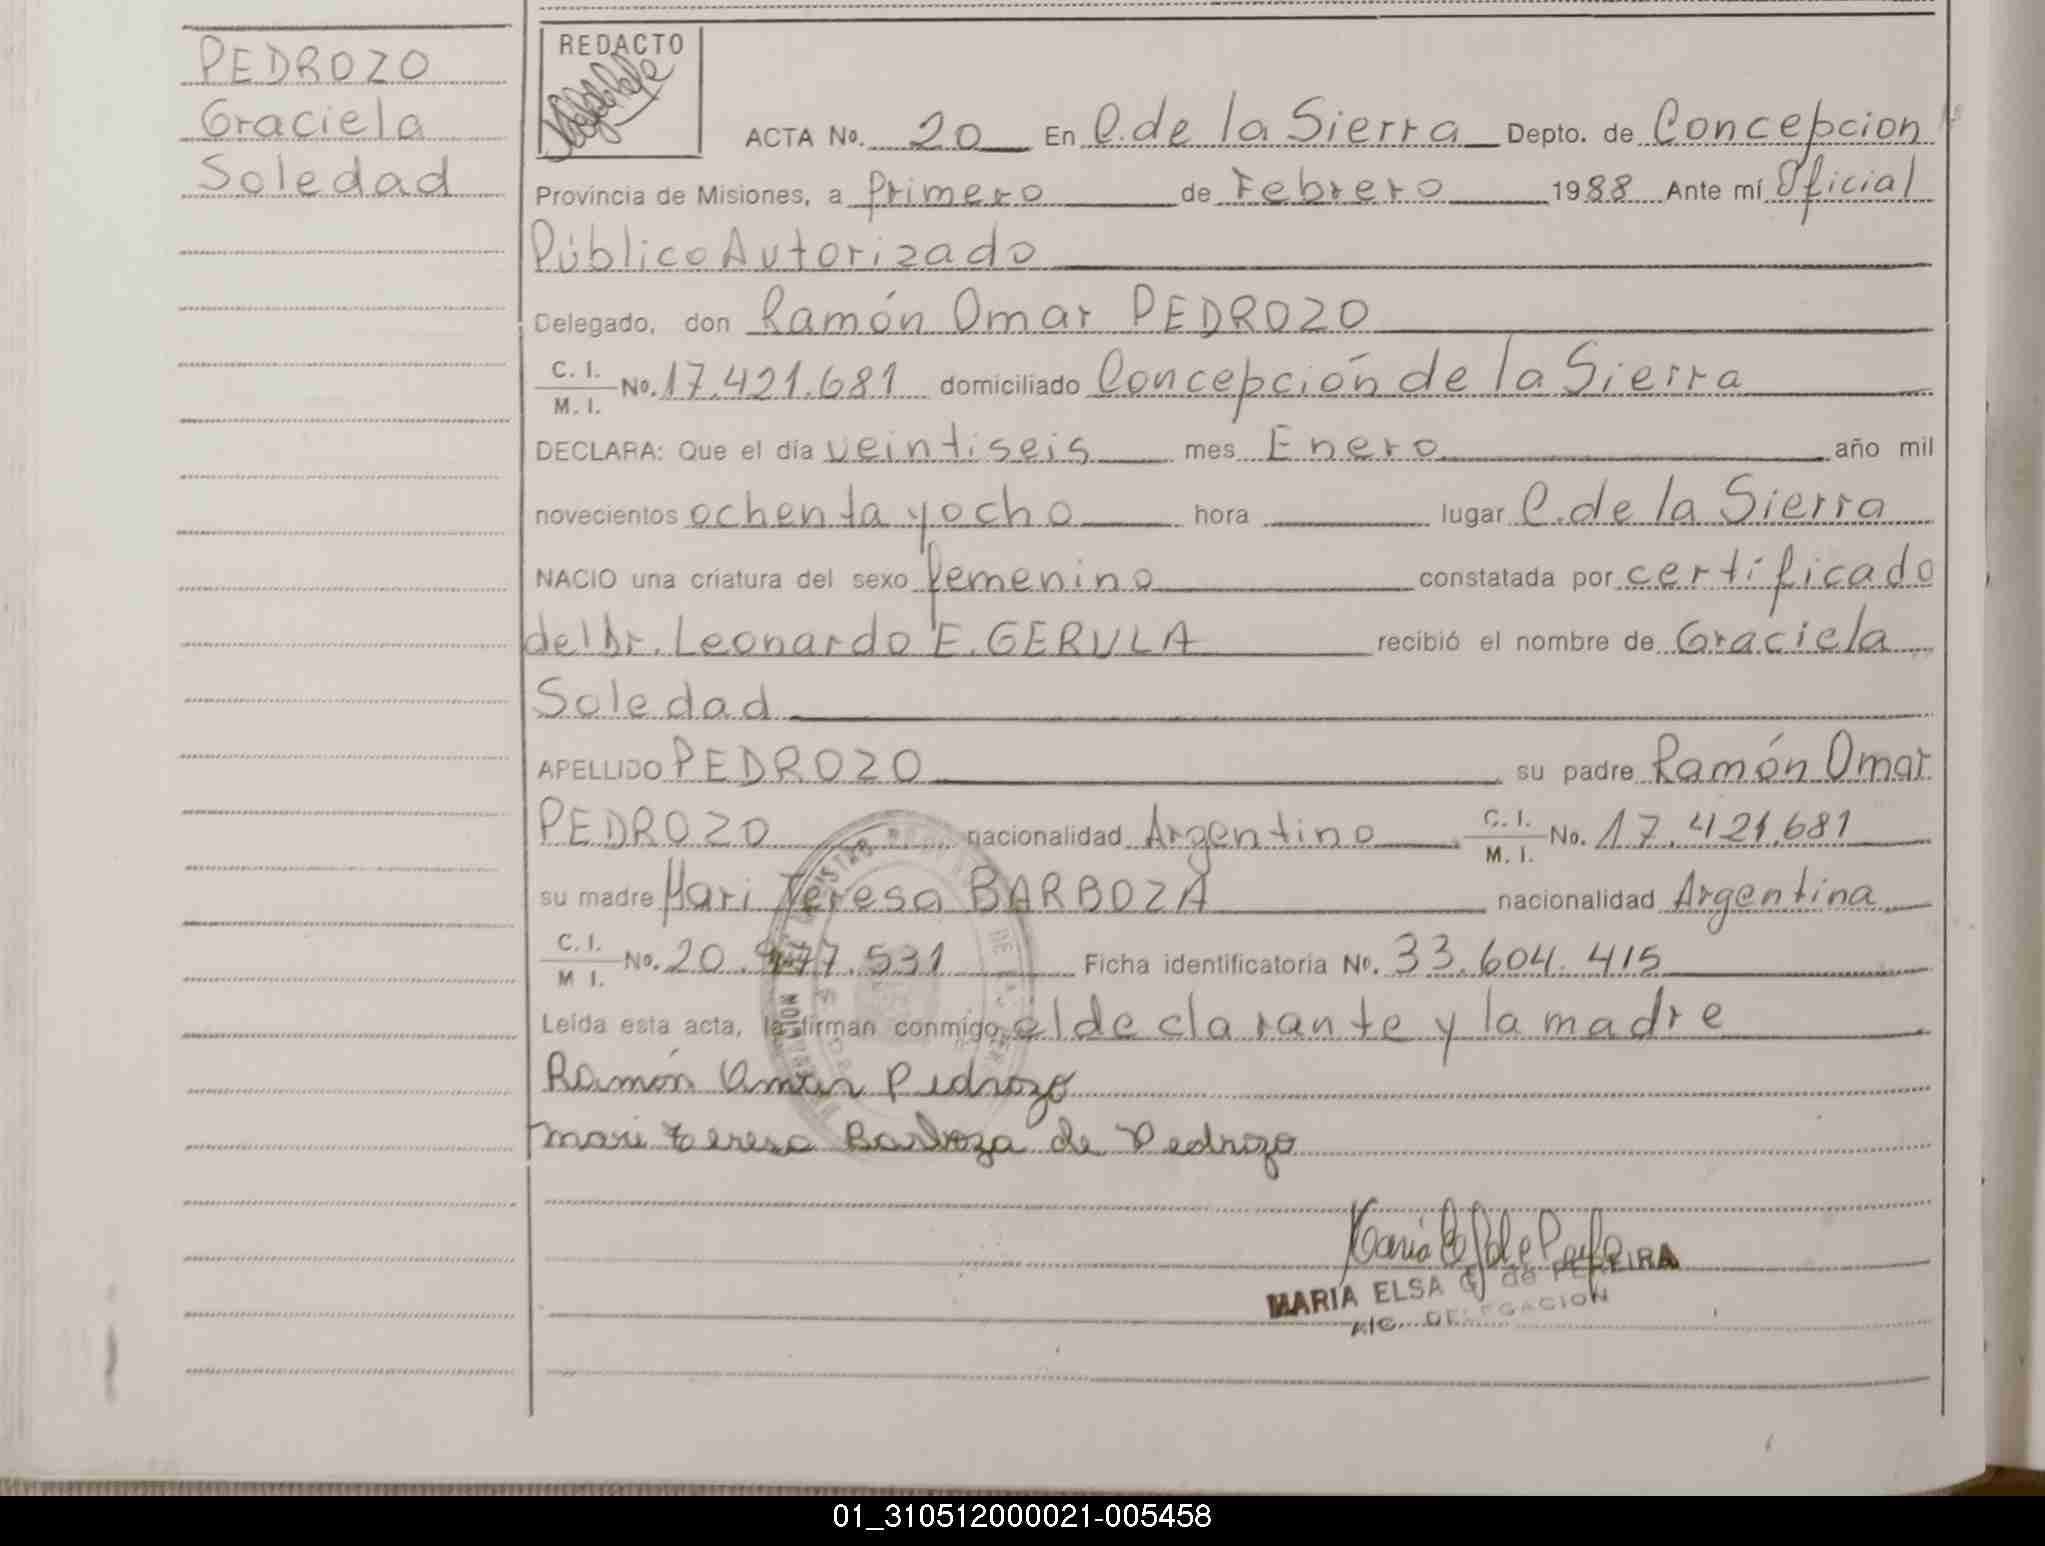 PEDROZO
Graciela
Soledad
REDACTO
ACTA No. 20 En C. de la Sierra Depto. de Concepcion
Provincia de Misiones, a Primero de Febrero 1988 Ante mí Oficial
Público Autorizado
Delegado, don Ramón Omar PEDROZO
C. I.
M. I. No. 17.421.681 domiciliado Concepción de la Sierra
DECLARA: Que el día veintiseis mes Enero año mil
novecientos ochenta y ocho hora lugar C. de la Sierra
NACIO una criatura del sexo femenino constatada por certificado
del Dr. Leonardo E. GERULA recibió el nombre de Graciela
Soledad
APELLIDO PEDROZO su padre Ramón Omar
PEDROZO nacionalidad Argentino C. I. M. I. No. 17.421.681
su madre Mari Teresa BARBOZA nacionalidad Argentina
C. I. M I. No. 20. 77.531 Ficha identificatoria No. 33.604.415
Leída esta acta, la firman conmigo el declarante y la madre
Ramón Omar Pedrozo
Mari teresa Barboza de Pedrozo
MARIA ELSA de PEREIRA
A/C. DELEGACION
01_310512000021-005458